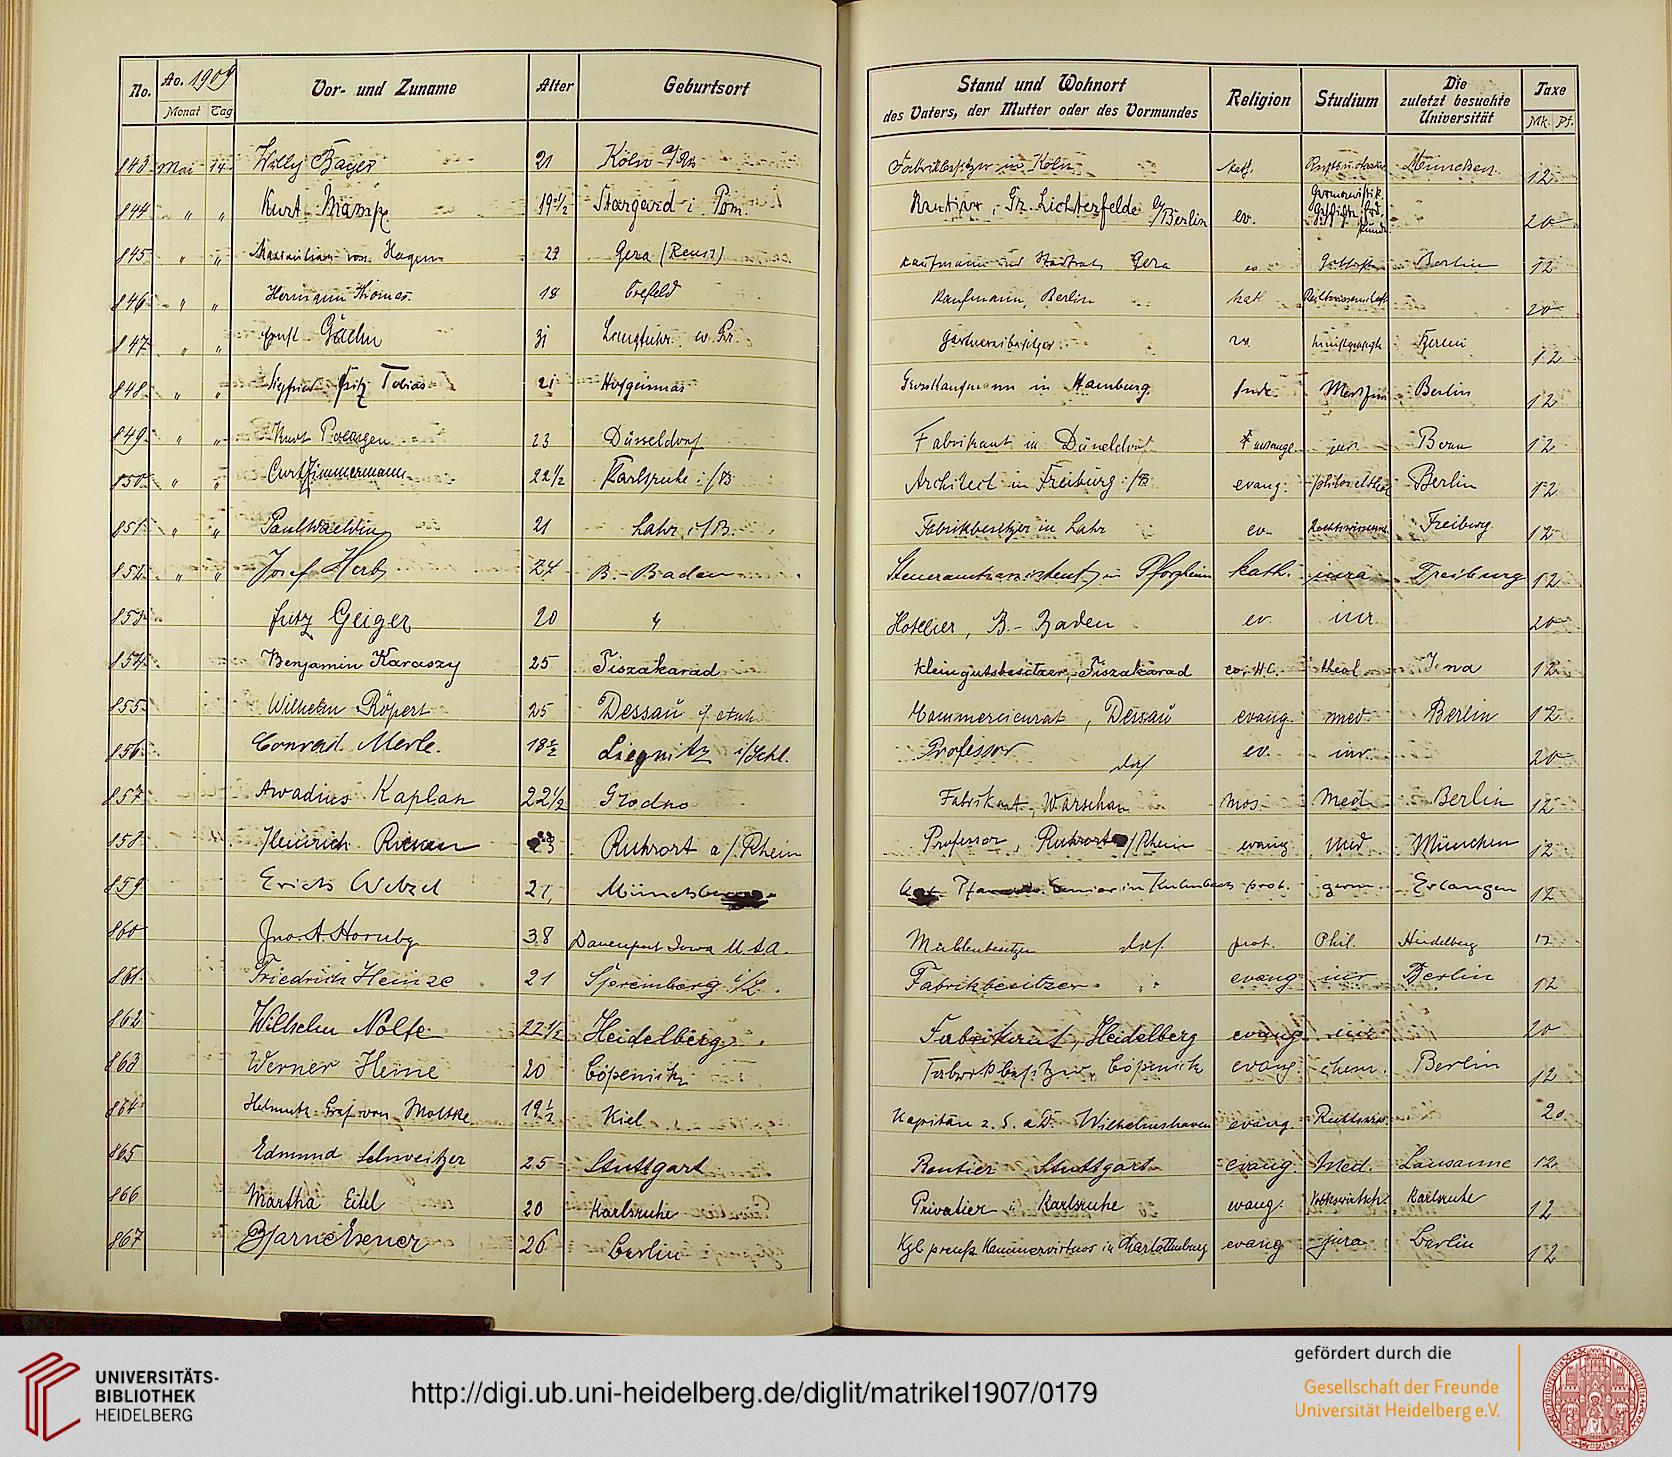 No. Ao. 1909 Vor- und Zuname Alter Geburtsort Stand und Wohnort Religion Studium Die zuletzt besuchte Universität Taxe
Monat Tag des Vaters, der Mutter oder des Vormundes Mk. Pf.
843 Mai 14 Willy Bayer 21 Köln a/Rh Fabrikbesitzer in Köln kath. München 12
844 " " Kurt Mampe 19 1/2 Stargard i. Pom. Rentier, Gr. Lichterfelde b/Berlin ev. Germanistik Geschichte Erdkunde 20
845 " " Maximilian von Hagen 22 Gera (Reuss) Kaufmann und Stadtrat Gera ev Geschichte Berlin 12
846 " " Hermann Thomas 18 Crefeld Kaufmann, Berlin kath Rechtswissenschaft 20
847 " " Ernst 31 Langfuhr w. Pr. Gärtnereibesitzer ev. Berlin 12
848 " " Siegfried Fritz Tobias 21 Hofgeismar Grosskaufmann in Hamburg Medizin Berlin 12
849 " " Kurt Poensgen 23 Düsseldorf Fabrikant in Düsseldorf evangl. jur. Bonn 12
850 " " Curt Zimmermann 22 1/2 Karlsruhe i/B Architect in Freiburg i/B evang. Berlin 12
851 " " Paul Waeldin 21 Lahr i/B. Fabrikbesitzer in Lahr ev. Rechtswissensch. Freiburg 12
852 " " Josef Herb 24 B.-Baden Steueramtsassistent in Pforzheim kath. jura Freiburg 12
853 Fritz Geiger 20 " Hotelier, B.-Baden ev. jur 20
854 Benjamin Karaszy 25 Tiszakarád Kleingutsbesitzer, Tiszakarád ev. H.C. theol Jena 12
855 Wilhelm Röpert 25 Dessau i/ Anh. Kommerzienrat, Dessau evang. med. Berlin 12
856 Conrad Merle. 18 1/2 Liegnitz i/Schl. Professor das. ev. jur. 20
857 Arcadius Kaplan 22 1/2 Grodno Fabrikant, Warschau mos. Med Berlin 12
858 Heinrich 23 Ruhrort a/Rhein Professor, Ruhrort a/Rhein evang Med München 12
859 Erich Wetzel 21, Senior in Kulmbach prot. germ. Erlangen 12
860 Jno. A. Hornby 38 Davenport Iowa U.S.A. Mühlenbesitzer das. prot. Phil. Heidelberg 12
861 Friedrich Heinze 21 Spremberg i/L. Fabrikbesitzer " evang. jur Berlin 12
862 Wilhelm Nolte 22 1/2 Heidelberg Fabrikant, Heidelberg evang. jur 20
863 Werner Heine 20 Cöpenick Fabrikbesitzer, Cöpenick evang. chem. Berlin 12
864 Helmuth Graf von Moltke 19 1/2 Kiel Kapitän z. S. a.D. Wilhelmshaven evang. Rechtswiss. 20
865 Edmund Schweitzer 25 Stuttgart Rentier Stuttgart evang. Med. Lausanne 12
866 Martha Eitel 20 Karlsruhe Privatier Karlsruhe evang. Volkswirtsch. Karlsruhe 12
867 26 Berlin Kgl. preuß. Kammervirtuos in Charlottenburg evang jura Berlin 12
UNIVERSITÄTS-
BIBLIOTHEK
HEIDELBERG
http://digi.ub.uni-heidelberg.de/diglit/matrikel1907/0179
gefördert durch die
Gesellschaft der Freunde
Universität Heidelberg e.V.